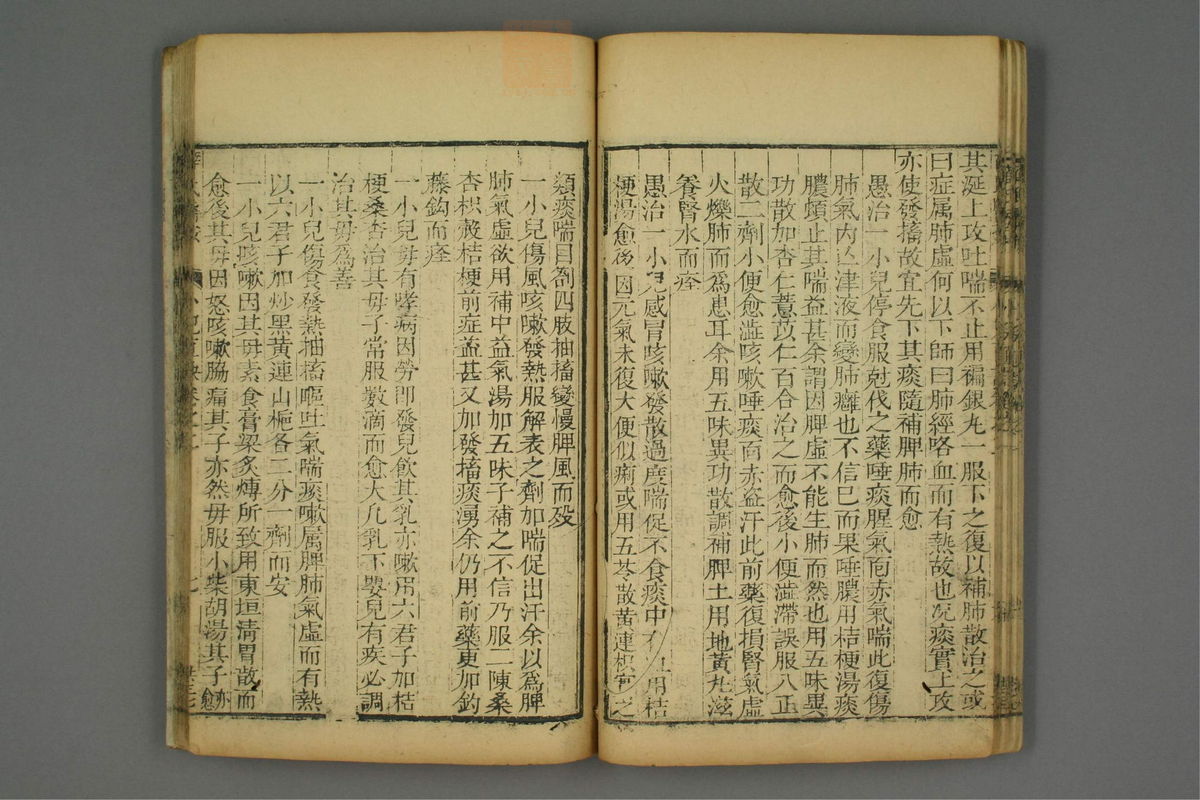 其涎上攻吐喘不止用褊銀丸一服下之復以補肺散治之或
曰症属肺虛何以下師曰肺經咯血而有熱故也况痰實上攻
亦使發搐故宜先下其痰隨補脾肺而愈
愚治一小兒停食服尅伐之藥唾痰腥氣面赤氣喘此復傷
肺氣内亡津液而變肺癰也不信已而果唾膿用桔梗湯痰
膿頓止其喘益甚余謂因脾虛不能生肺而然也用五味異
功散加杏仁薏苡仁百合治之而愈後小便澁滯誤服八正
散二劑小便愈澁咳嗽唾痰面赤盗汗此前藥復損腎氣虛
火爍肺而爲患耳余用五味異功散調補脾土用地黄丸滋
養腎水而痊
愚治一小兒感冒咳嗽發散過度喘促不食痰中有血用桔
梗湯愈後因元氣未復大便似痢或用五苓散黄連枳實之
類痰喘目劄四肢抽搐變慢脾風而歿
一小兒傷風咳嗽發熱服解表之劑加喘促出汗余以爲脾
肺氣虛欲用補中益氣湯加五味子補之不信乃服二陳桑
杏枳殼桔梗前症益甚又加發搐痰湧余仍用前藥更加釣
藤鈎而痊
一小兒毋有哮病因勞即發兒飲其乳亦嗽用六君子加桔
梗桑杏治其毋子常服數滴而愈大凡乳下嬰兒有疾必調
治其毋爲善
一小兒傷食發熱抽搐嘔吐氣喘痰嗽属脾肺氣虛而有熱
以六君子加炒黑黄連山梔各二分一劑而安
一小兒咳嗽因其毋素食膏粱炙煿所致用東垣清胃散而
愈後其毋因怒咳嗽脇痛其子亦然毋服小柴胡湯其子亦愈